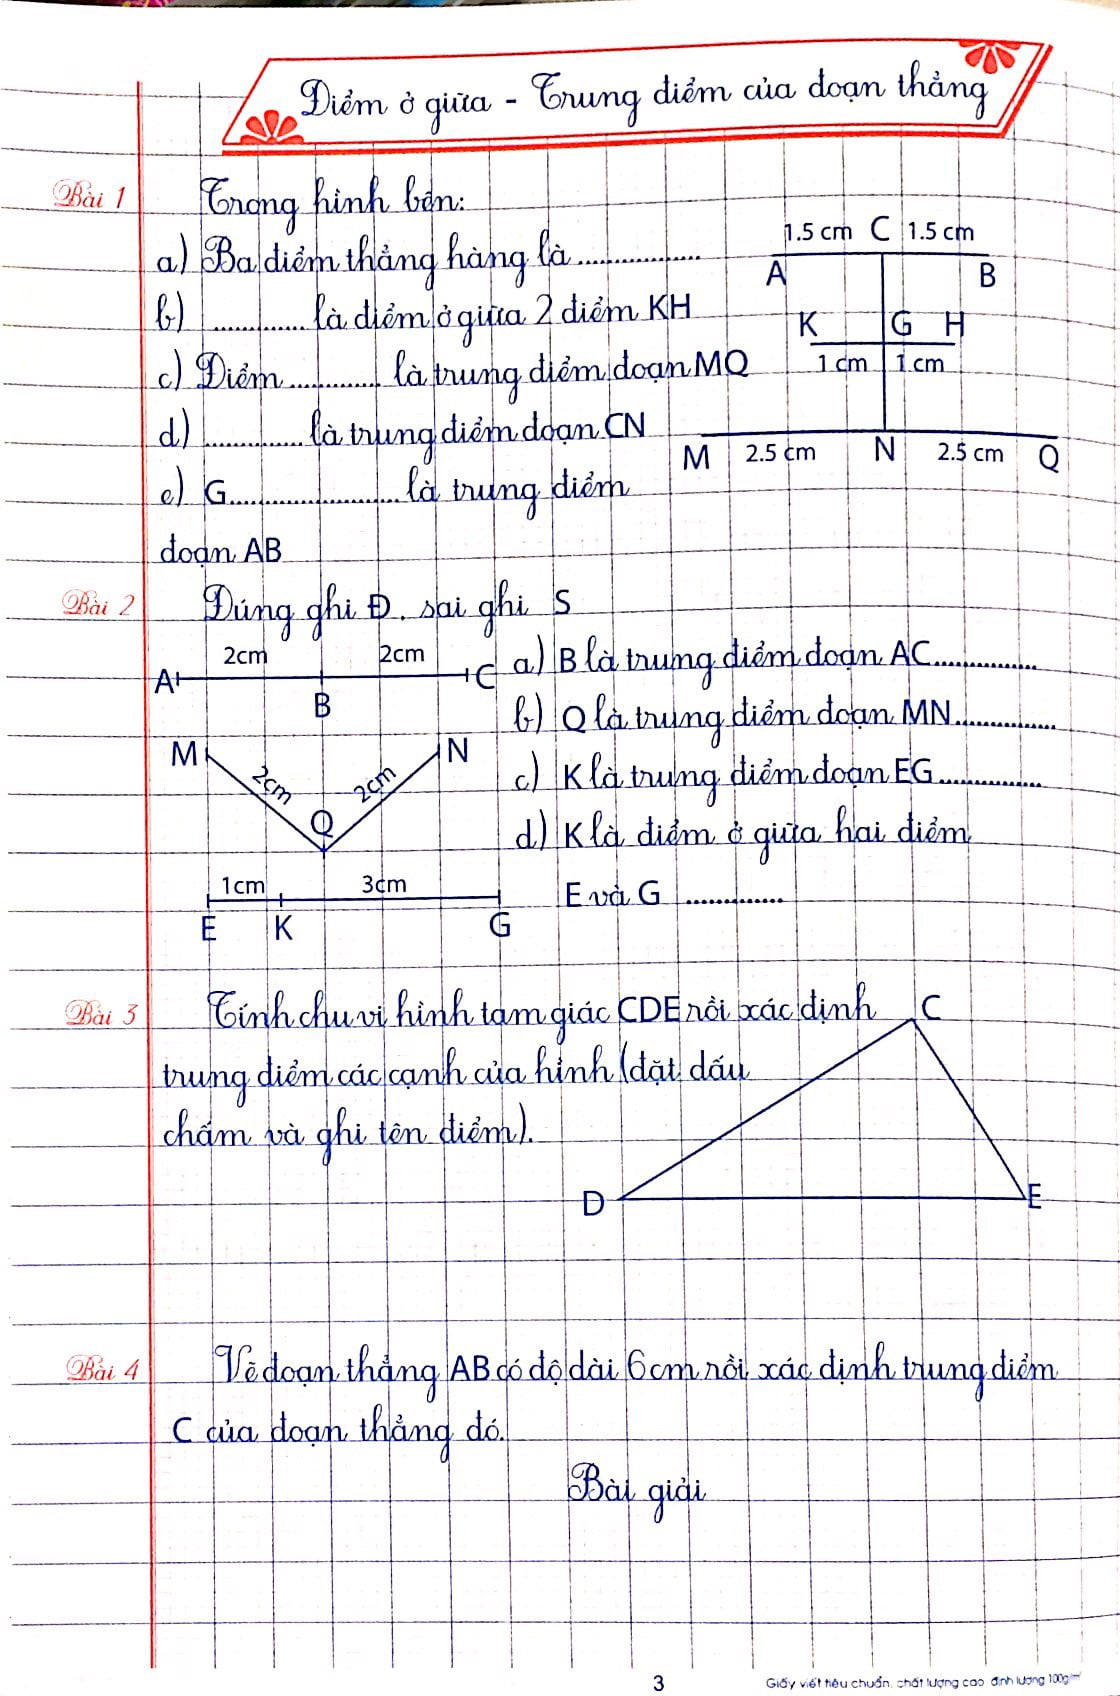 Điểm ở giữa - Trung điểm của đoạn thẳng
Bài 1 Trong hình bên:
a) Ba điểm thẳng hàng là ..................
b) ............. là điểm ở giữa 2 điểm KH
c) Điểm ............. là trung điểm đoạn MQ
d) .............. là trung điểm đoạn CN
e) G........................ là trung điểm
đoạn AB
1.5 cm C 1.5 cm
A B
K G H
1 cm 1 cm
M 2.5 cm N 2.5 cm Q
Bài 2 Đúng ghi Đ, sai ghi S
2cm 2cm
A C
B
M N
2cm 2cm
Q
1cm 3cm
E K G
a) B là trung điểm đoạn AC...............
b) Q là trung điểm đoạn MN..............
c) K là trung điểm đoạn EG...............
d) K là điểm ở giữa hai điểm
E và G ..............
Bài 3 Tính chu vi hình tam giác CDE rồi xác định
trung điểm các cạnh của hình (đặt dấu
chấm và ghi tên điểm).
C
D E
Bài 4 Vẽ đoạn thẳng AB có độ dài 6cm rồi xác định trung điểm
C của đoạn thẳng đó.
Bài giải
3 Giấy viết tiêu chuẩn, chất lượng cao định lượng 100g/m²